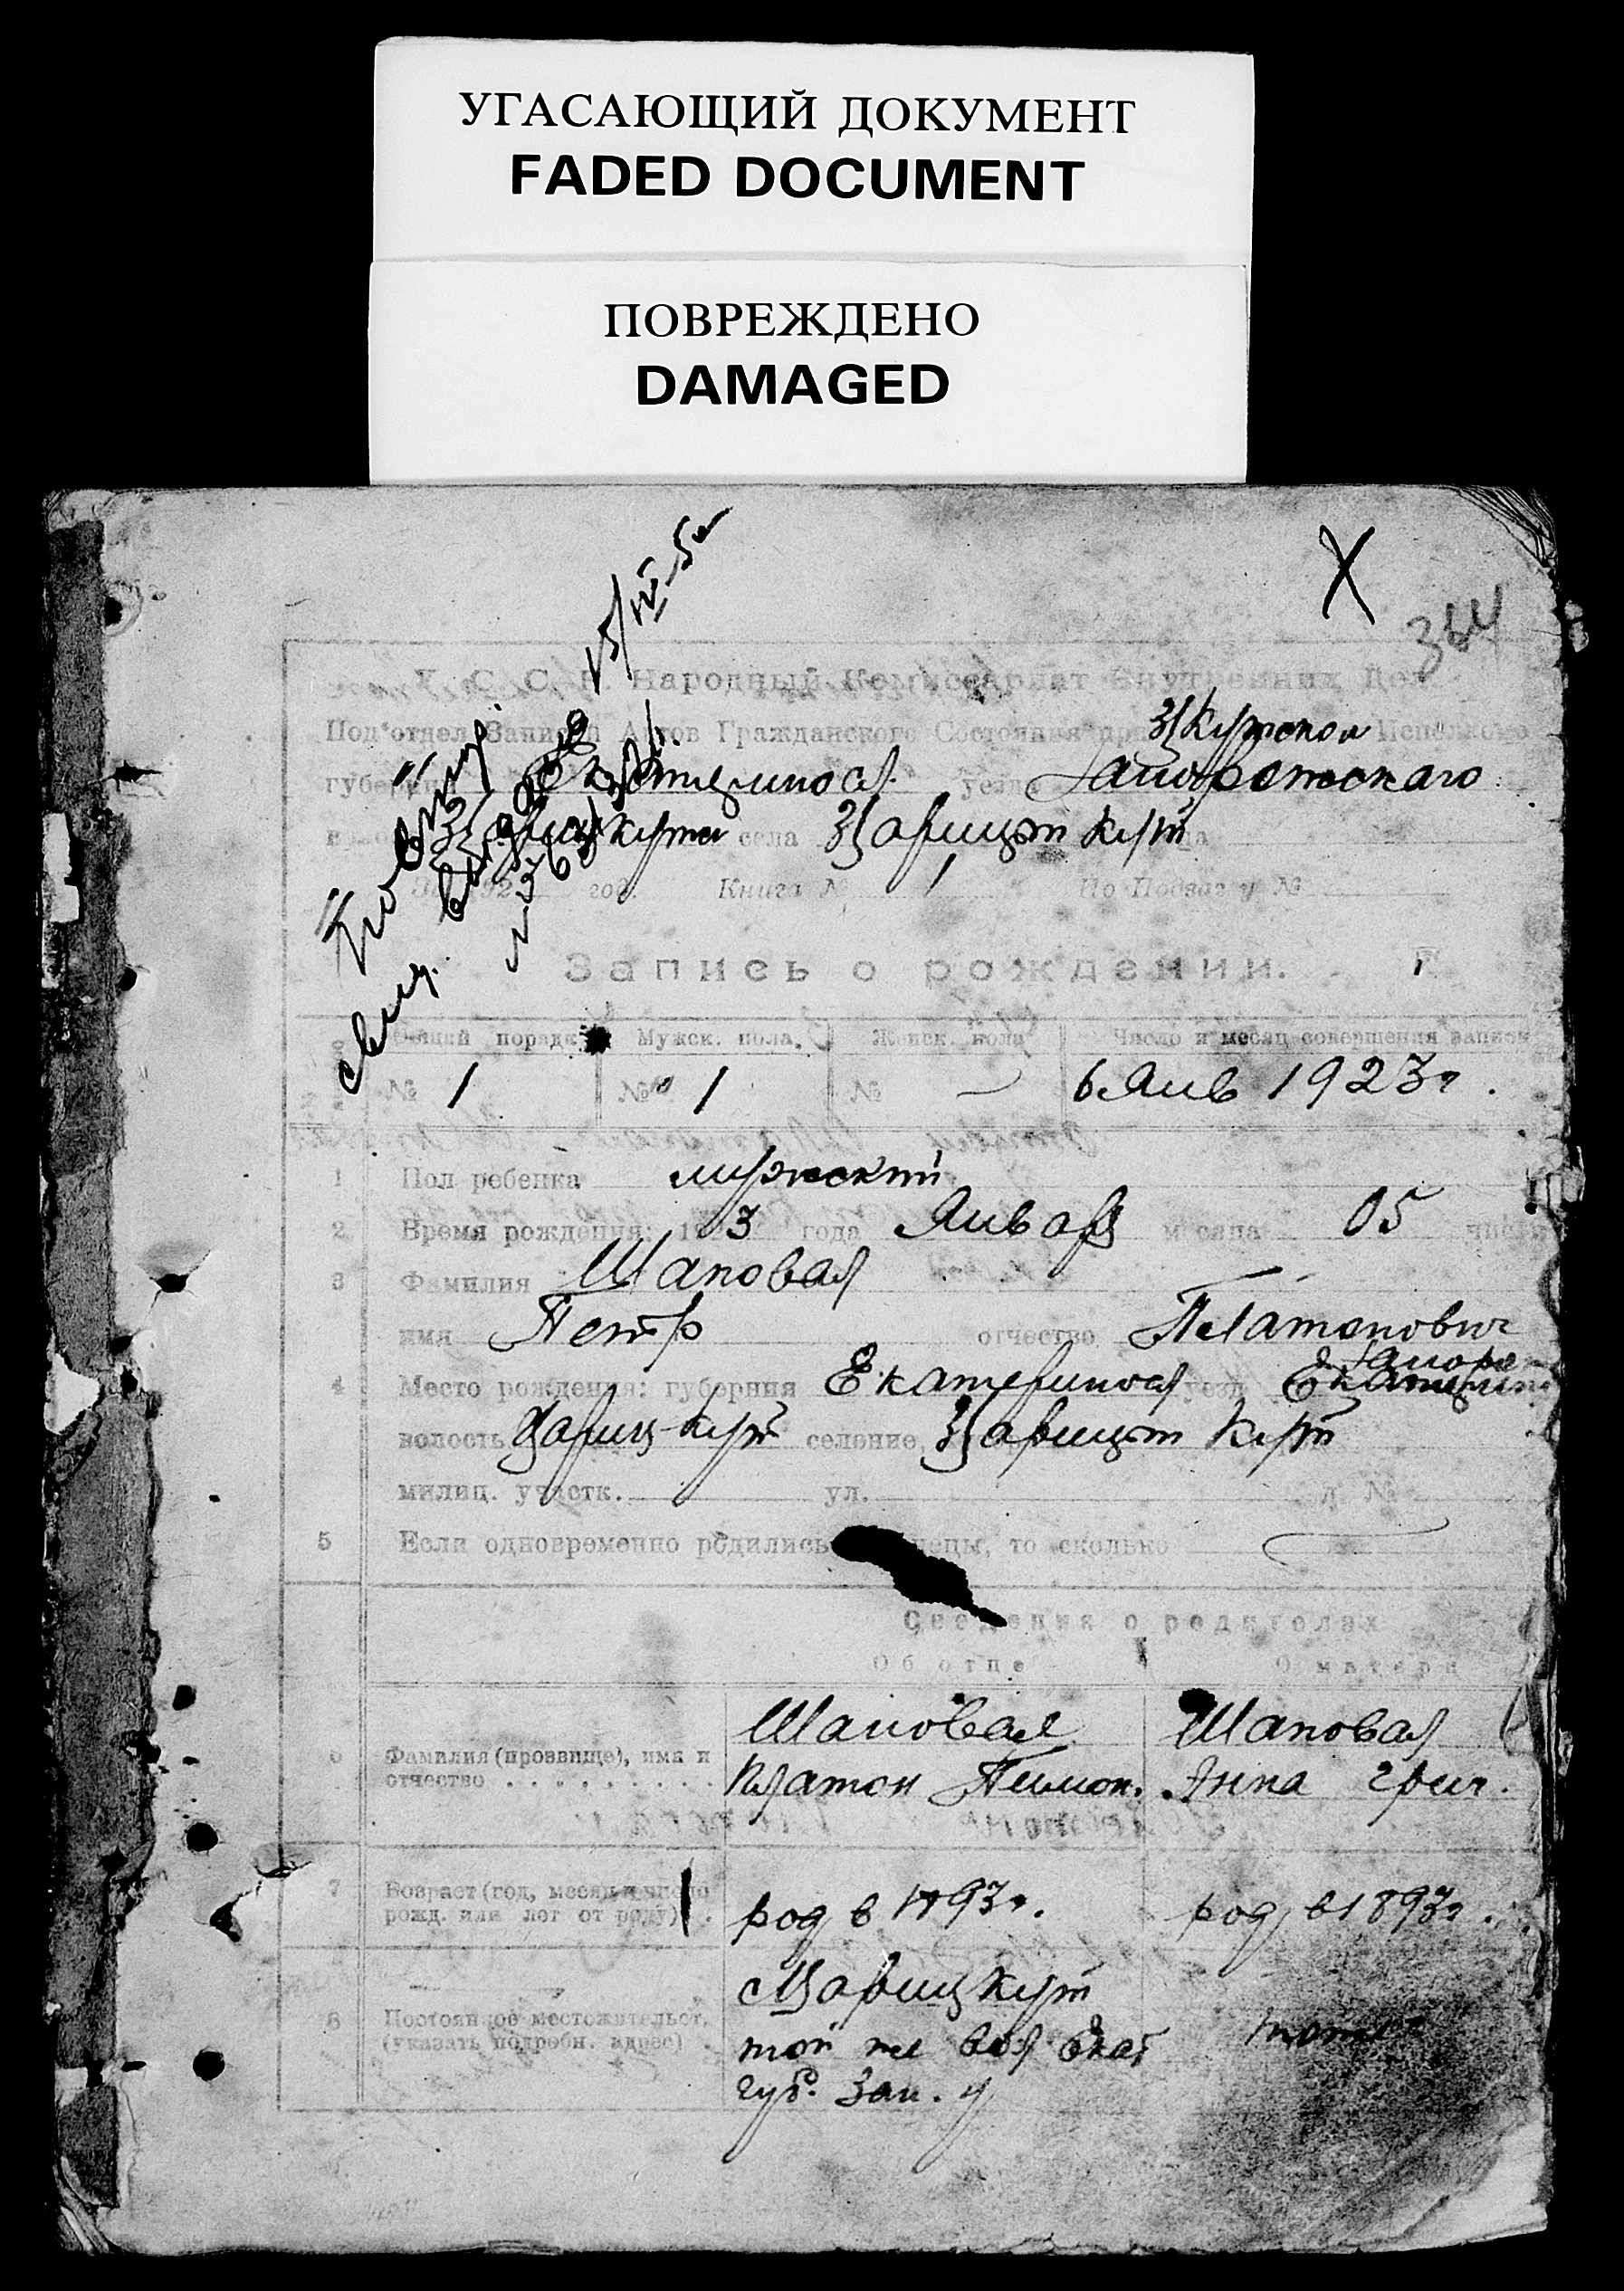 УГАСАЮЩИЙ ДОКУМЕНТ
FADED DOCUMENT
ПОВРЕЖДЕНО
DAMAGED
364
С. С. Р. Народный Комиссариат Внутренних Дел
Под'отдел Записи Актов Гражданского Состояния при
губернии Екатериносл. уезда Запорожскаго
села Царицын Кут
192 год. Книга № 1 По Подзаг у №
Запись о рождении.
Общий порядк. Мужск. пола. Женск. пола Число и месяц совершения записи
№ 1 № 1 № — 6 Янв 1923 г.
1 Пол ребенка мужский
2 Время рождения: 192 3 года Январ месяца 05 числа
3 Фамилия Шаповал
имя Петр отчество Платонович
4 Место рождения: губерния Екатериносл уезд Запорож
волость Цариц-Кут селение Царицын Кут
милиц. участк. ул. д №
5 Если одновременно родились то сколько —
Сведения о родителях
Об отце О матери
6 Фамилия (прозвище), имя и отчество Шаповал Шаповал
Платон Пимон. Анна Григ.
7 Возраст (год, месяц и число
рожд. или лет от роду) род в 1893 г. род в 1893 г.
с Царицкут
8 Постоянное местожительст.
(указать подробн. адрес) той же вол Екат тоже
губ. Зап. у